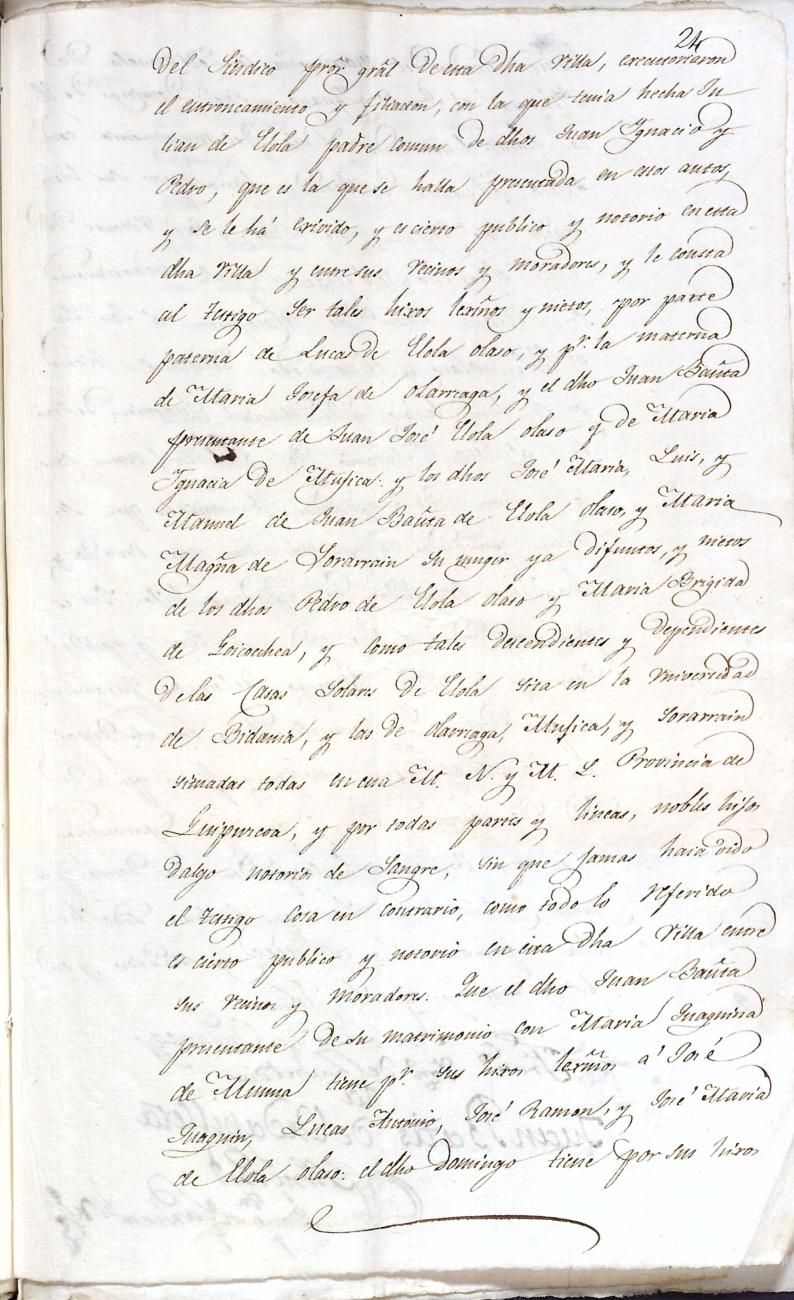 24
Del Sindico pror. gral de esta dha villa, executoriaron
el entroncamiento y filiacion, con la que tenia hecha Ju-
lian de Elola padre comun de dhos Juan Ignacio y
Pedro, que es la que se halla presentada en estos autos,
y se le há exivido, y es cierto publico y notorio en esta
dha villa y entre sus vecinos y moradores, y le consta
al testigo ser tales hixos lexmos y nietos, por parte
paterna de Lucas de Elola olaso, y pr. la materna
de Maria Josefa de olarreaga, y el dho Juan Bauta
presentante de Juan José Elola olaso y de Maria
Ignacia de Mufica: y los dhos José Maria, Luis, y
Manuel de Juan Bauta de Elola olaso, y Maria
Magna de Sorarrain su muger ya difuntos, y nietos
de los dhos Pedro de Elola olaso y Maria Brigida
de Goicoechea, y como tales descendientes y dependientes
de las Casas Solares de Elola sita en la Universidad
de Bidania, y las de olarreaga, Mufica, y Sorarrain
situadas todas en esta M. N. y M. L. Provincia de
Guipurcoa, y por todas partes y lineas, nobles hijos
dalgo notorios de Sangre, sin que jamas haia oido
el testigo cosa en contrario, como todo lo referido
es cierto publico y notorio en esta dha villa entre
sus vecinos y moradores. Que el dho Juan Bauta
presentante de su matrimonio con Maria Juaquina
de Munua tiene pr. sus hixos lexmos á José
Juaquin, Lucas Antonio, José Ramon, y José Maria
de Elola olaso: el dho Domingo tiene por sus hixos